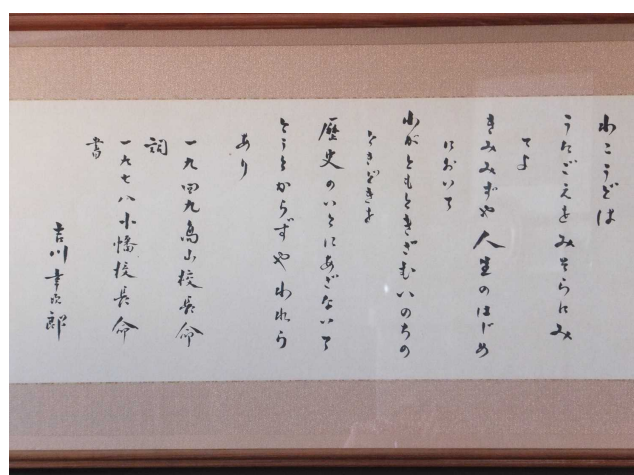 わこうどは
うたごえをみそらにみ
てよ
きみみずや人生のはじめ
において
わがともときざむいのちの
ときどきを
歷史のいとにあざないて
とうとからずやわれら
あり
一九四九鳥山校長命
詞
一九七八小幡校長命
書
吉川幸次郎